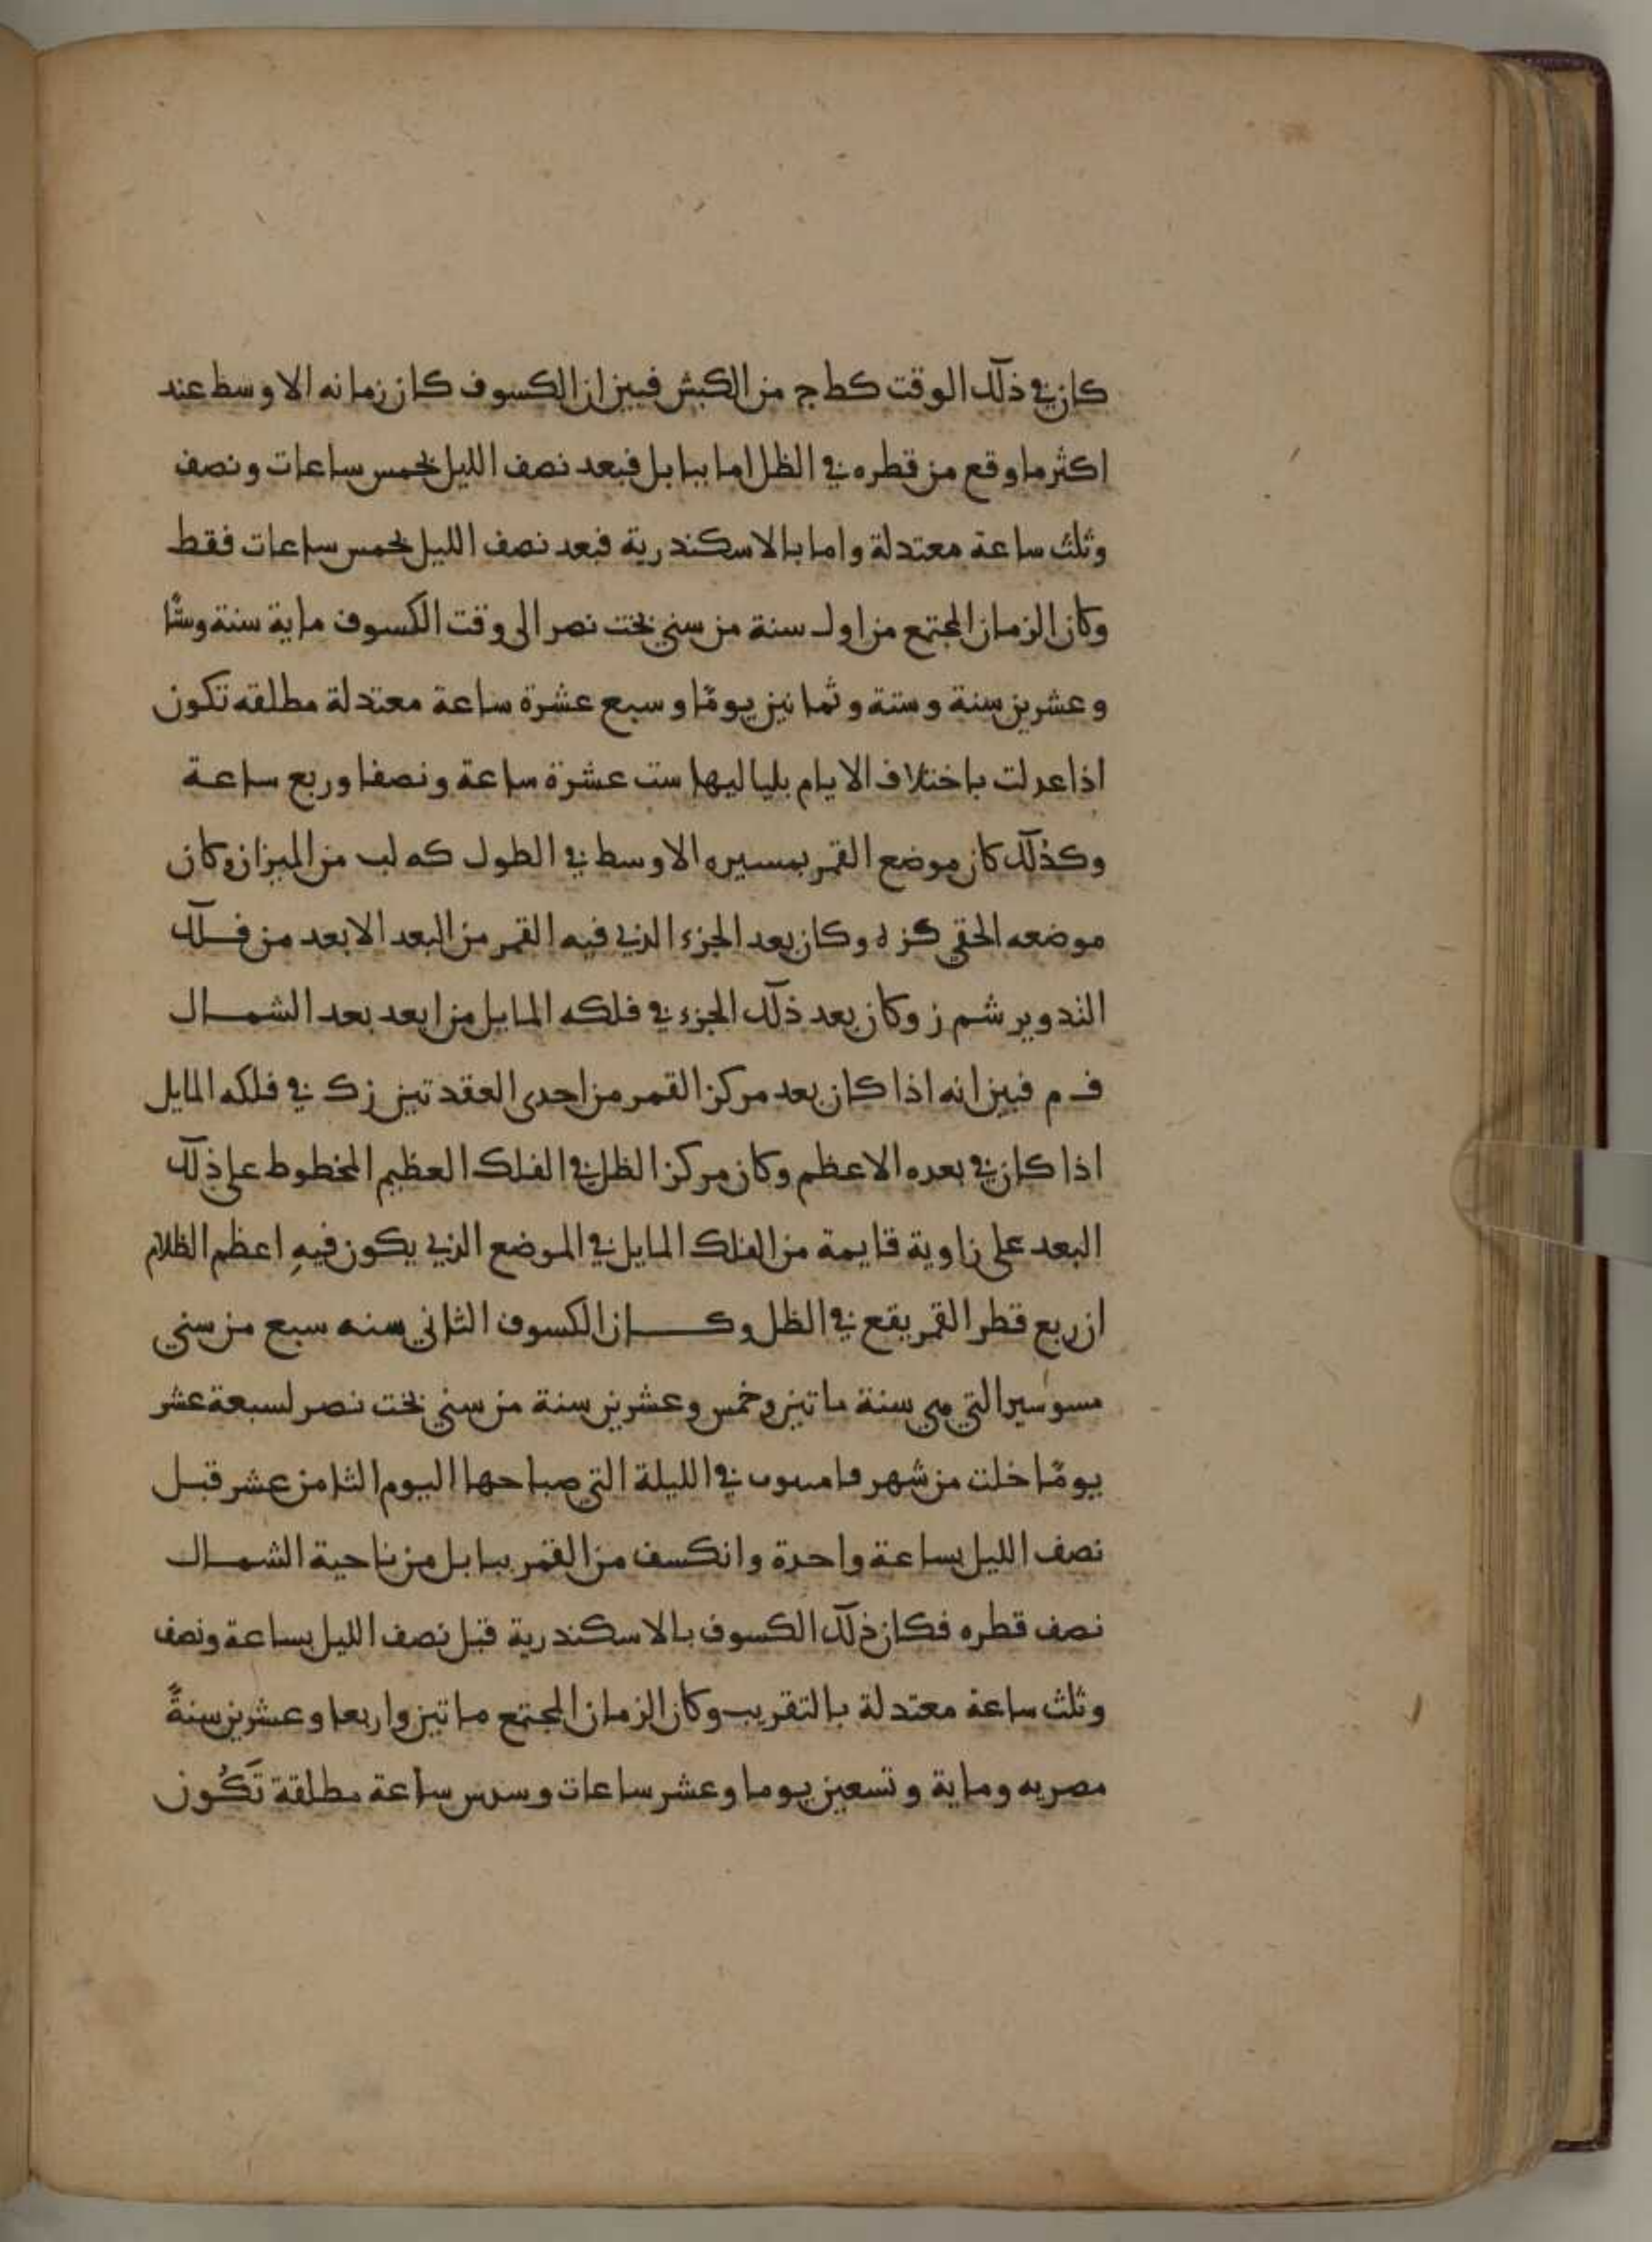 كان في ذلك الوقت كط ج من الكبش فبين ان الكسوف كان زمانه الاوسط عند
اكثر ما وقع من قطره في الظل اما ببابل فبعد نصف الليل بخمس ساعات ونصف
وثلث ساعة معتدلة واما بالاسكندرية فبعد نصف الليل بخمس ساعات فقط
وكان الزمان المجتمع من اول سنة من سني بخت نصر الى وقت الكسوف ماية سنة وستًا
وعشرين سنة وستة وثمانين يومًا وسبع عشرة ساعة معتدلة مطلقه تكون
اذا عدلت باختلاف الايام بلياليها ست عشرة ساعة ونصفا وربع ساعة
وكذلك كان موضع القمر بمسيره الاوسط في الطول كه لب من الميزان وكان
موضعه الحقي كز ه وكان بعد الجزء الذي فيه القمر من البعد الابعد من فلك
التدوير شم ز وكان بعد ذلك الجزء في فلكه المايل من ابعد بعد الشمال
ف م فبين انه اذا كان بعد مركز القمر من احدى العقدتين ز ك في فلكه المايل
اذا كان في بعده الاعظم وكان مركز الظل في الفلك العظيم المخطوط على ذلك
البعد على زاوية قايمة من الفلك المايل في الموضع الذي يكون فيهِ اعظم الظلام
ان ربع قطر القمر يقع في الظل وكان الكسوف الثاني سنه سبع من سني
التي هي سنة ماتين وخمس وعشرين سنة من سني بخت نصر لسبعة عشر
يومًا خلت من شهر في الليلة التي صباحها اليوم الثامن عشر قبل
نصف الليل بساعة واحدة وانكسف من القمر ببابل من ناحية الشمال
نصف قطره فكان ذلك الكسوف بالاسكندرية قبل نصف الليل بساعة ونصف
وثلث ساعة معتدلة بالتقريب وكان الزمان المجتمع ماتين واربعا وعشرين سنةً
مصريه وماية وتسعين يوما وعشر ساعات وسدس ساعة مطلقة تَكُون